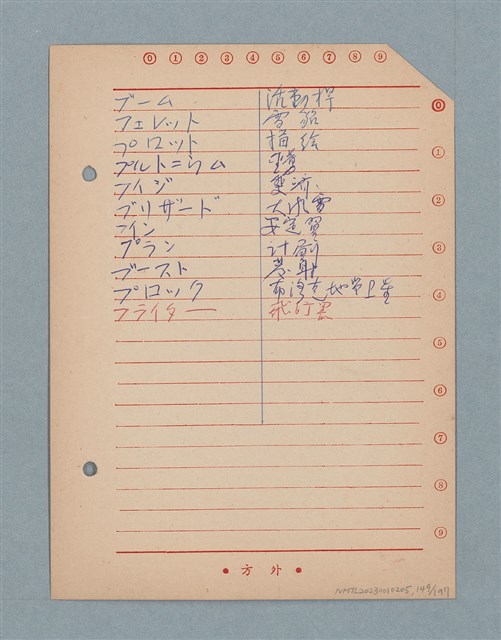 0 1 2 3 4 5 6 7 8 9
ブーム 活動桿
フェレット 雪貂
プロット 描絵
プルトニウム
フイジ
ブリザード 大吹雪
フイン 安定翼
プラン 計劃
ブースト
ブロック
フライター 飛行器
0
1
2
3
4
5
6
7
8
9
• 方 外 •
NMTL20230010205, 149/197